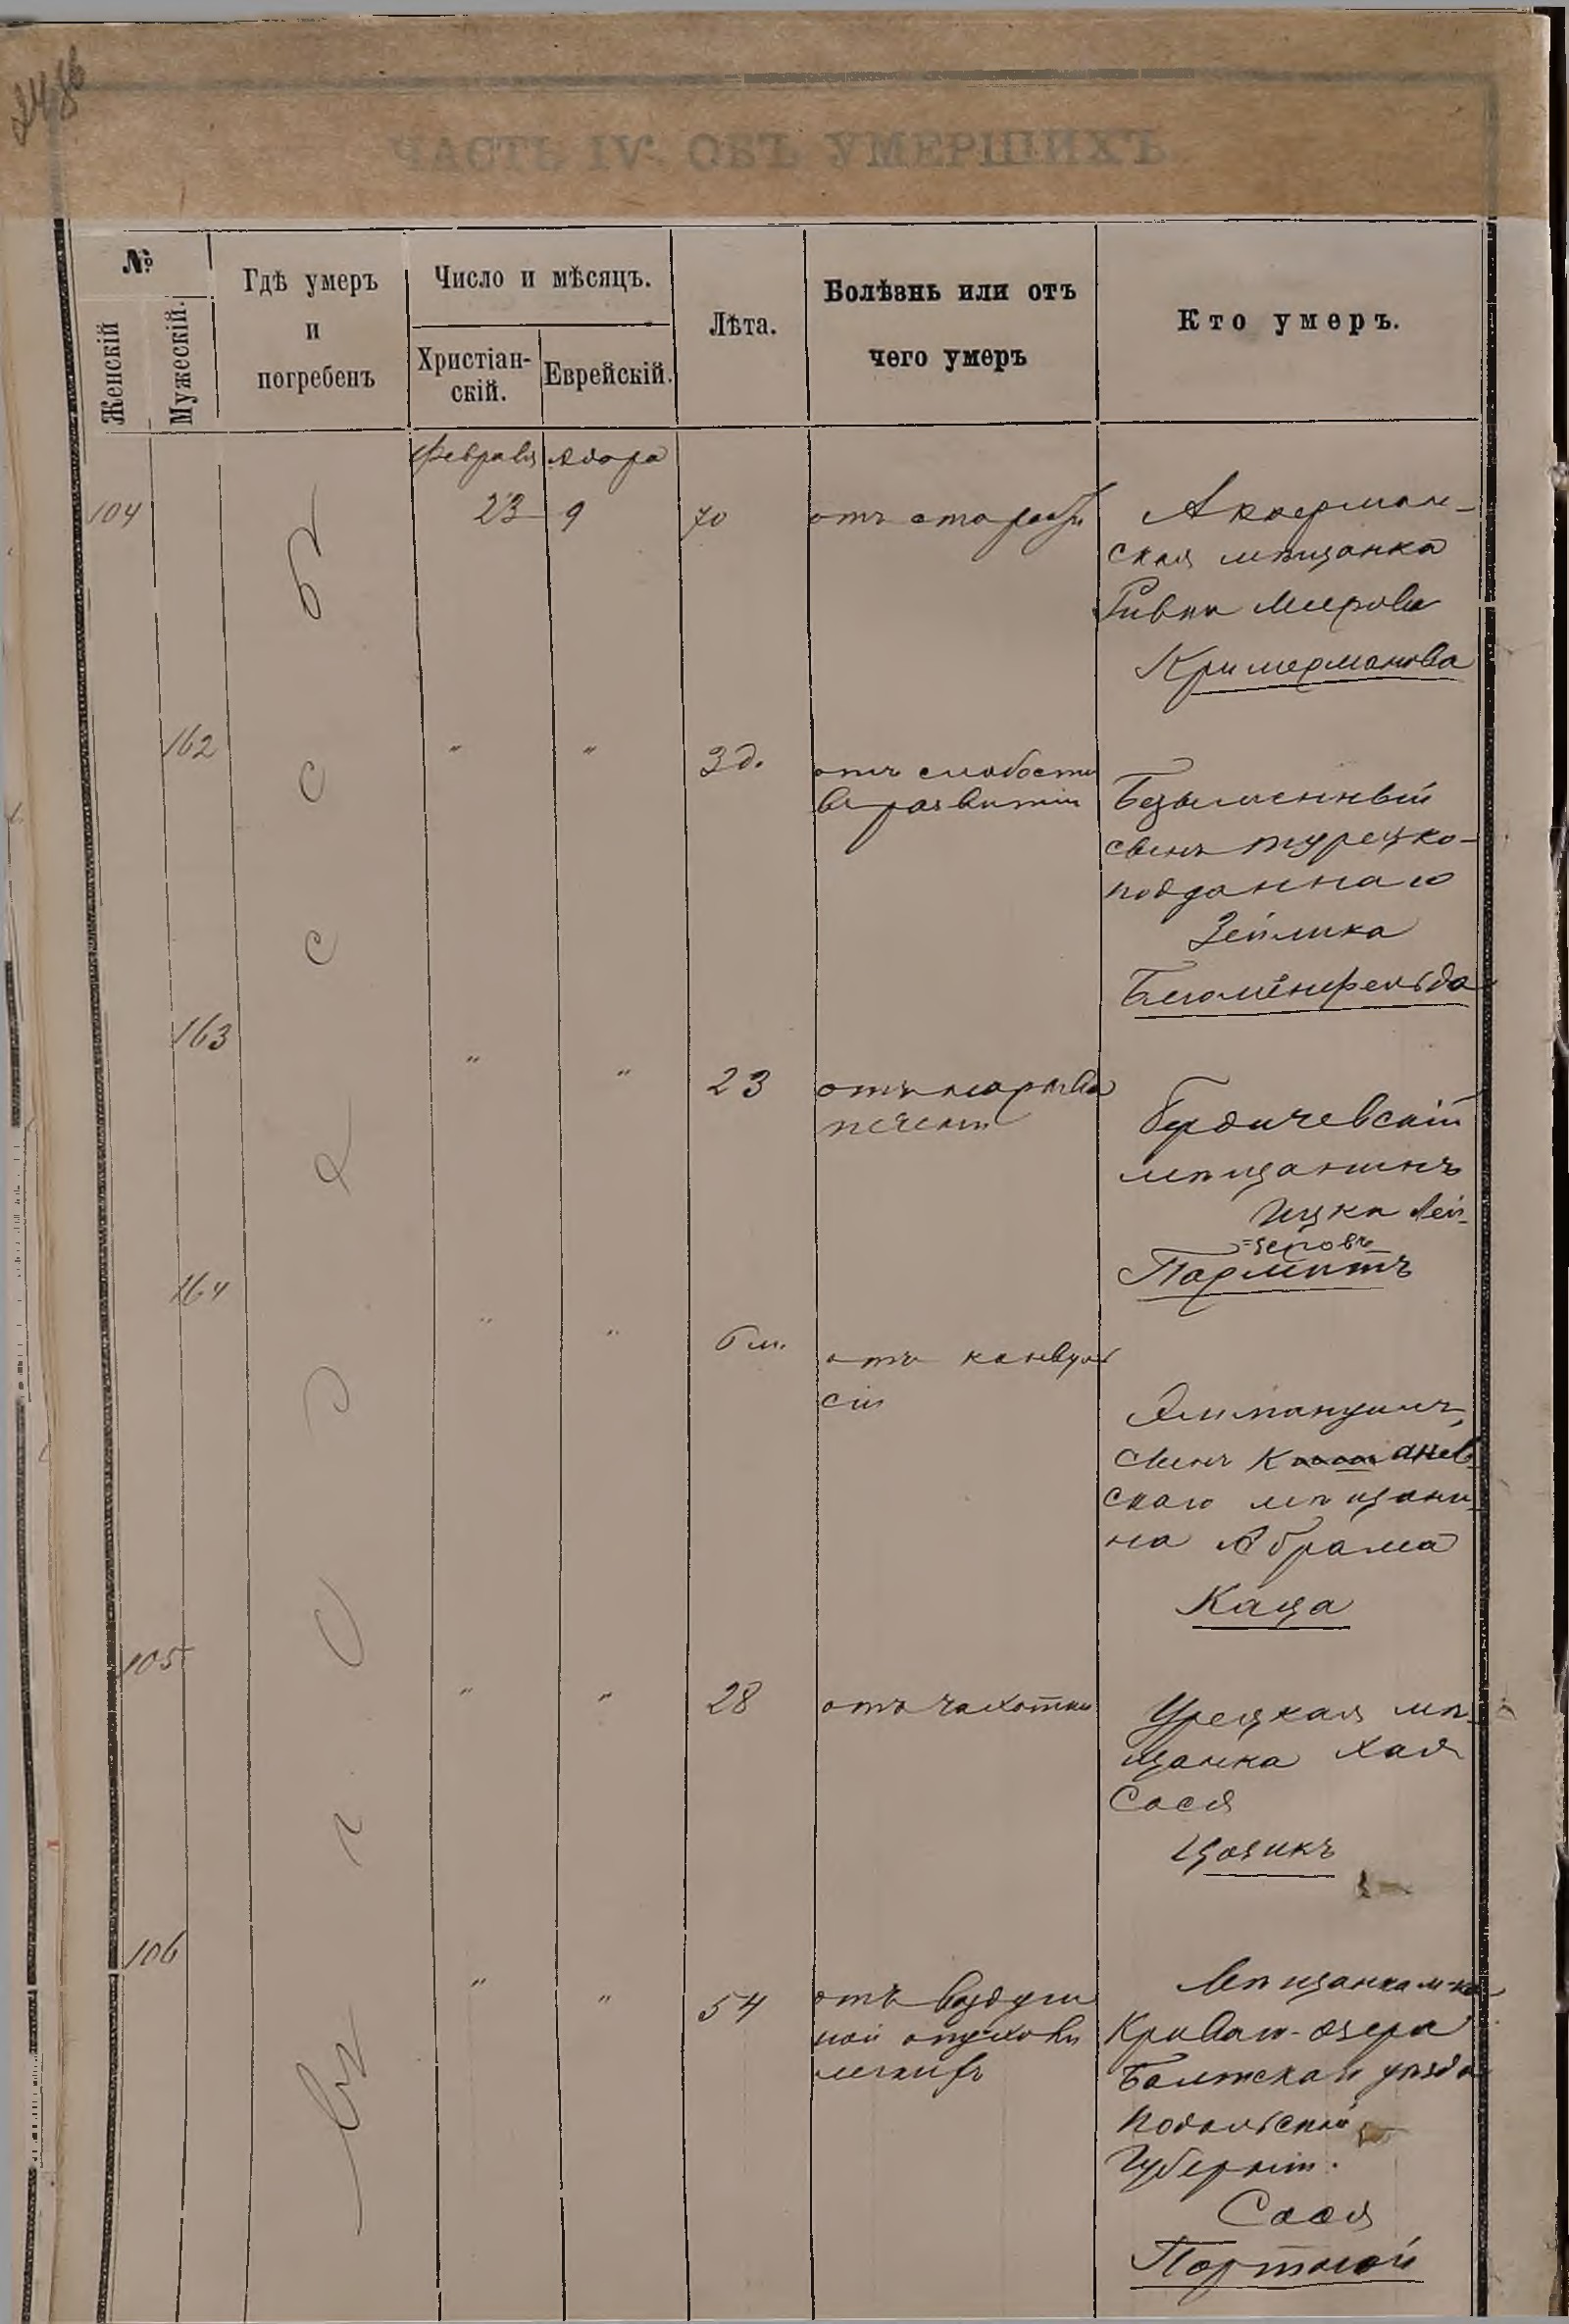 ЧАСТЬ IV. ОБЪ УМЕРШИХЪ
№
Женскій
Мужескій.
Гдѣ умеръ
и
погребенъ
Число и мѣсяцъ.
Христіан-
скій.
Еврейскій.
Лѣта.
Болѣзнь или отъ
чего умеръ
Кто умеръ.
Февраля Адара
104
23
9
70
отъ старости
Аккерман-
ская мѣщанка
Ривка Меерова
Кримермонова
162
"
"
3 д.
отъ слабости
въ развитіи
Безыменный
сынъ турецко-
подданнаго
Зейлика
Блюменфельда
163
"
"
23
отъ нарыва
печени
Бердичевскій
мѣщанинъ
Ицко Лей-
=зеровъ
Пармитъ
164
"
"
6 м.
отъ конвуль
сіи
сынъ К аневъ
скаго мѣщани-
на Абрама
Каца
105
"
"
28
отъ чахотки
Урецкая мѣ-
щанка Хая
Сося
Цозикъ
106
"
"
54
отъ воздуш
ной опухоли
легкихъ
Мѣщанка м-ка
Криваго-озера
Балтскаго уѣзда
Подольской
Губерніи.
Сося
Портной
въ г. Одессѣ